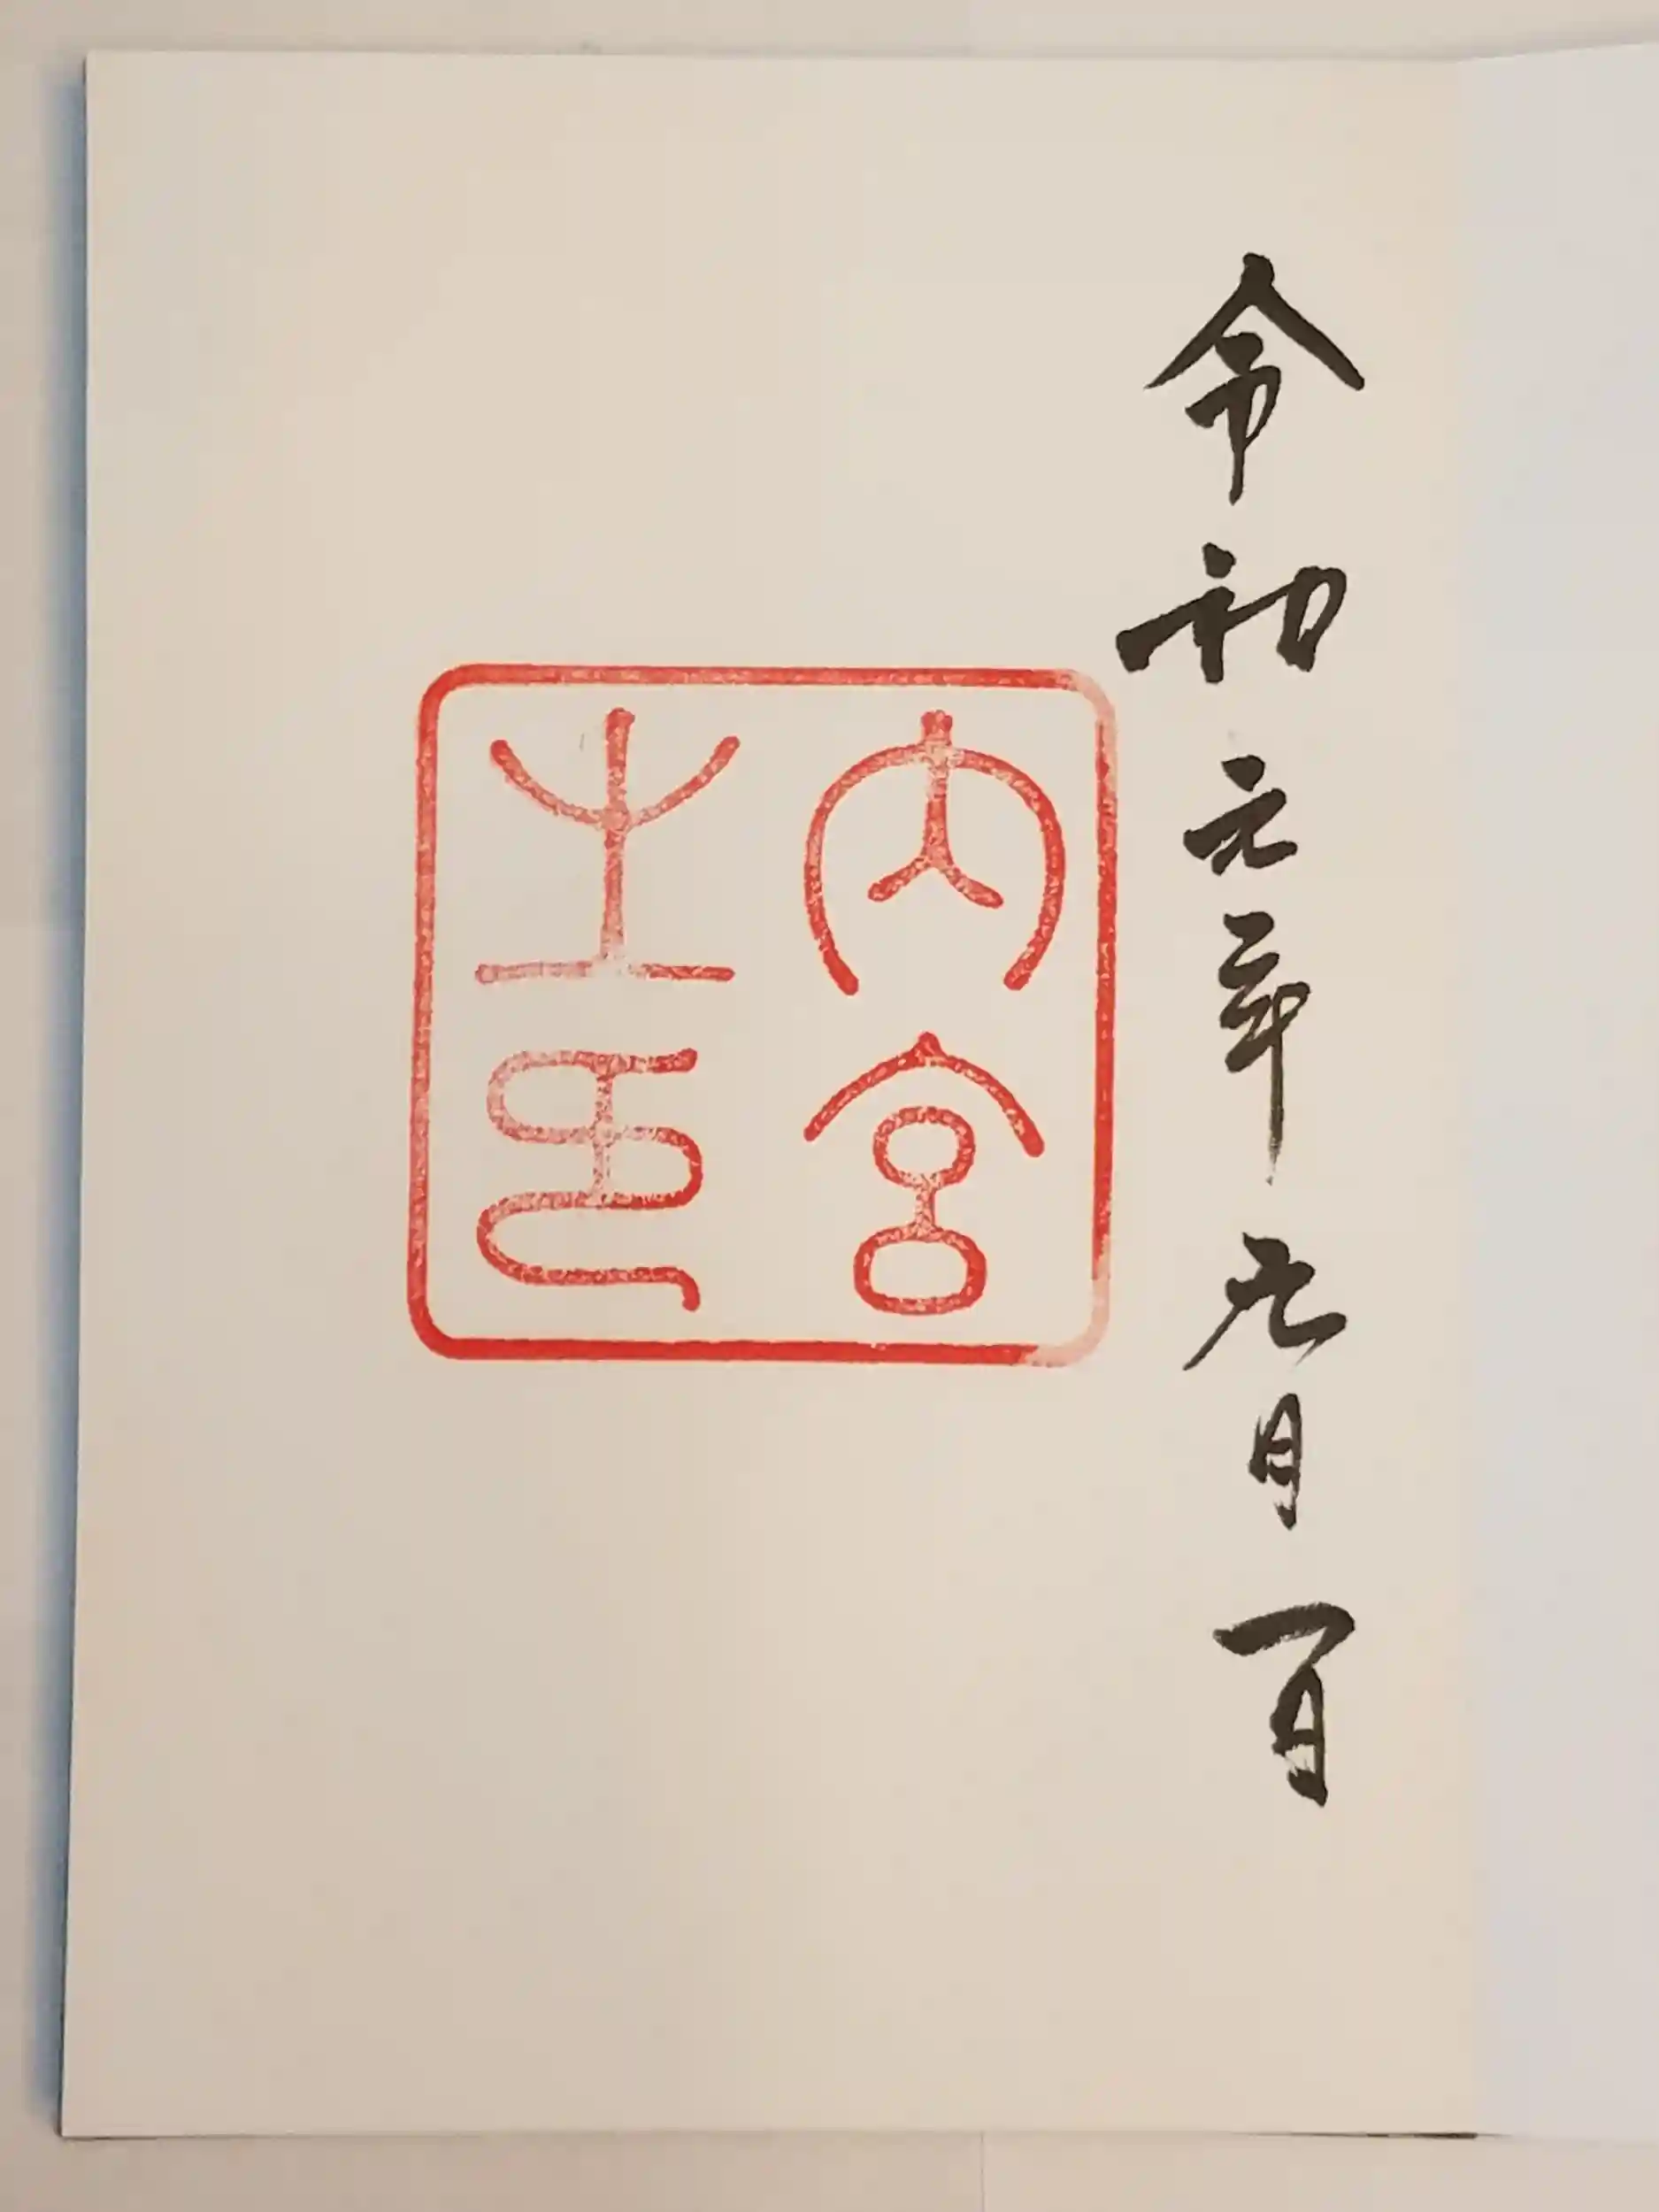 令和元年九月一日
内宮
之印